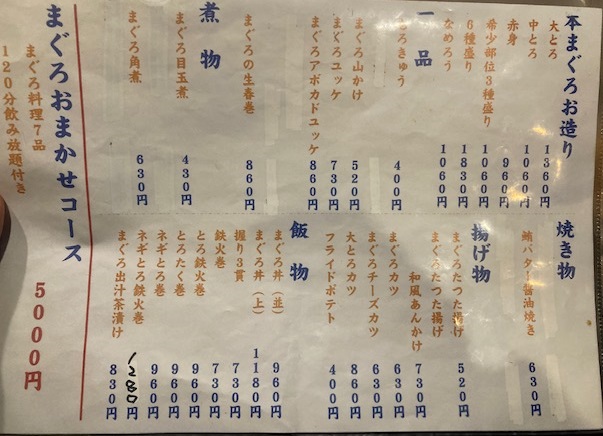 本まぐろお造り
大とろ 1360円
中とろ 1060円
赤身 960円
希少部位3種盛り 1060円
6種盛り 1830円
なめろう 1060円
一品
とろきゅう 400円
まぐろ山かけ 520円
まぐろユッケ 730円
まぐろアボカドユッケ 860円
まぐろの生春巻 860円
煮物
まぐろ目玉煮 430円
まぐろ角煮 630円
焼き物
鮪バター醤油焼き 630円
揚げ物
まぐろたつた揚げ 520円
まぐろたつた揚げ
和風あんかけ 730円
まぐろカツ 630円
まぐろチーズカツ 630円
大とろカツ 860円
フライドポテト 400円
飯物
まぐろ丼(並) 960円
まぐろ丼(上) 1180円
握り3貫 730円
鉄火巻 730円
とろ鉄火巻 960円
とろたく巻 960円
ネギとろ巻 960円
ネギとろ鉄火巻 1280円
まぐろ出汁茶漬け 830円
まぐろおまかせコース 5000円
まぐろ料理7品
120分飲み放題付き